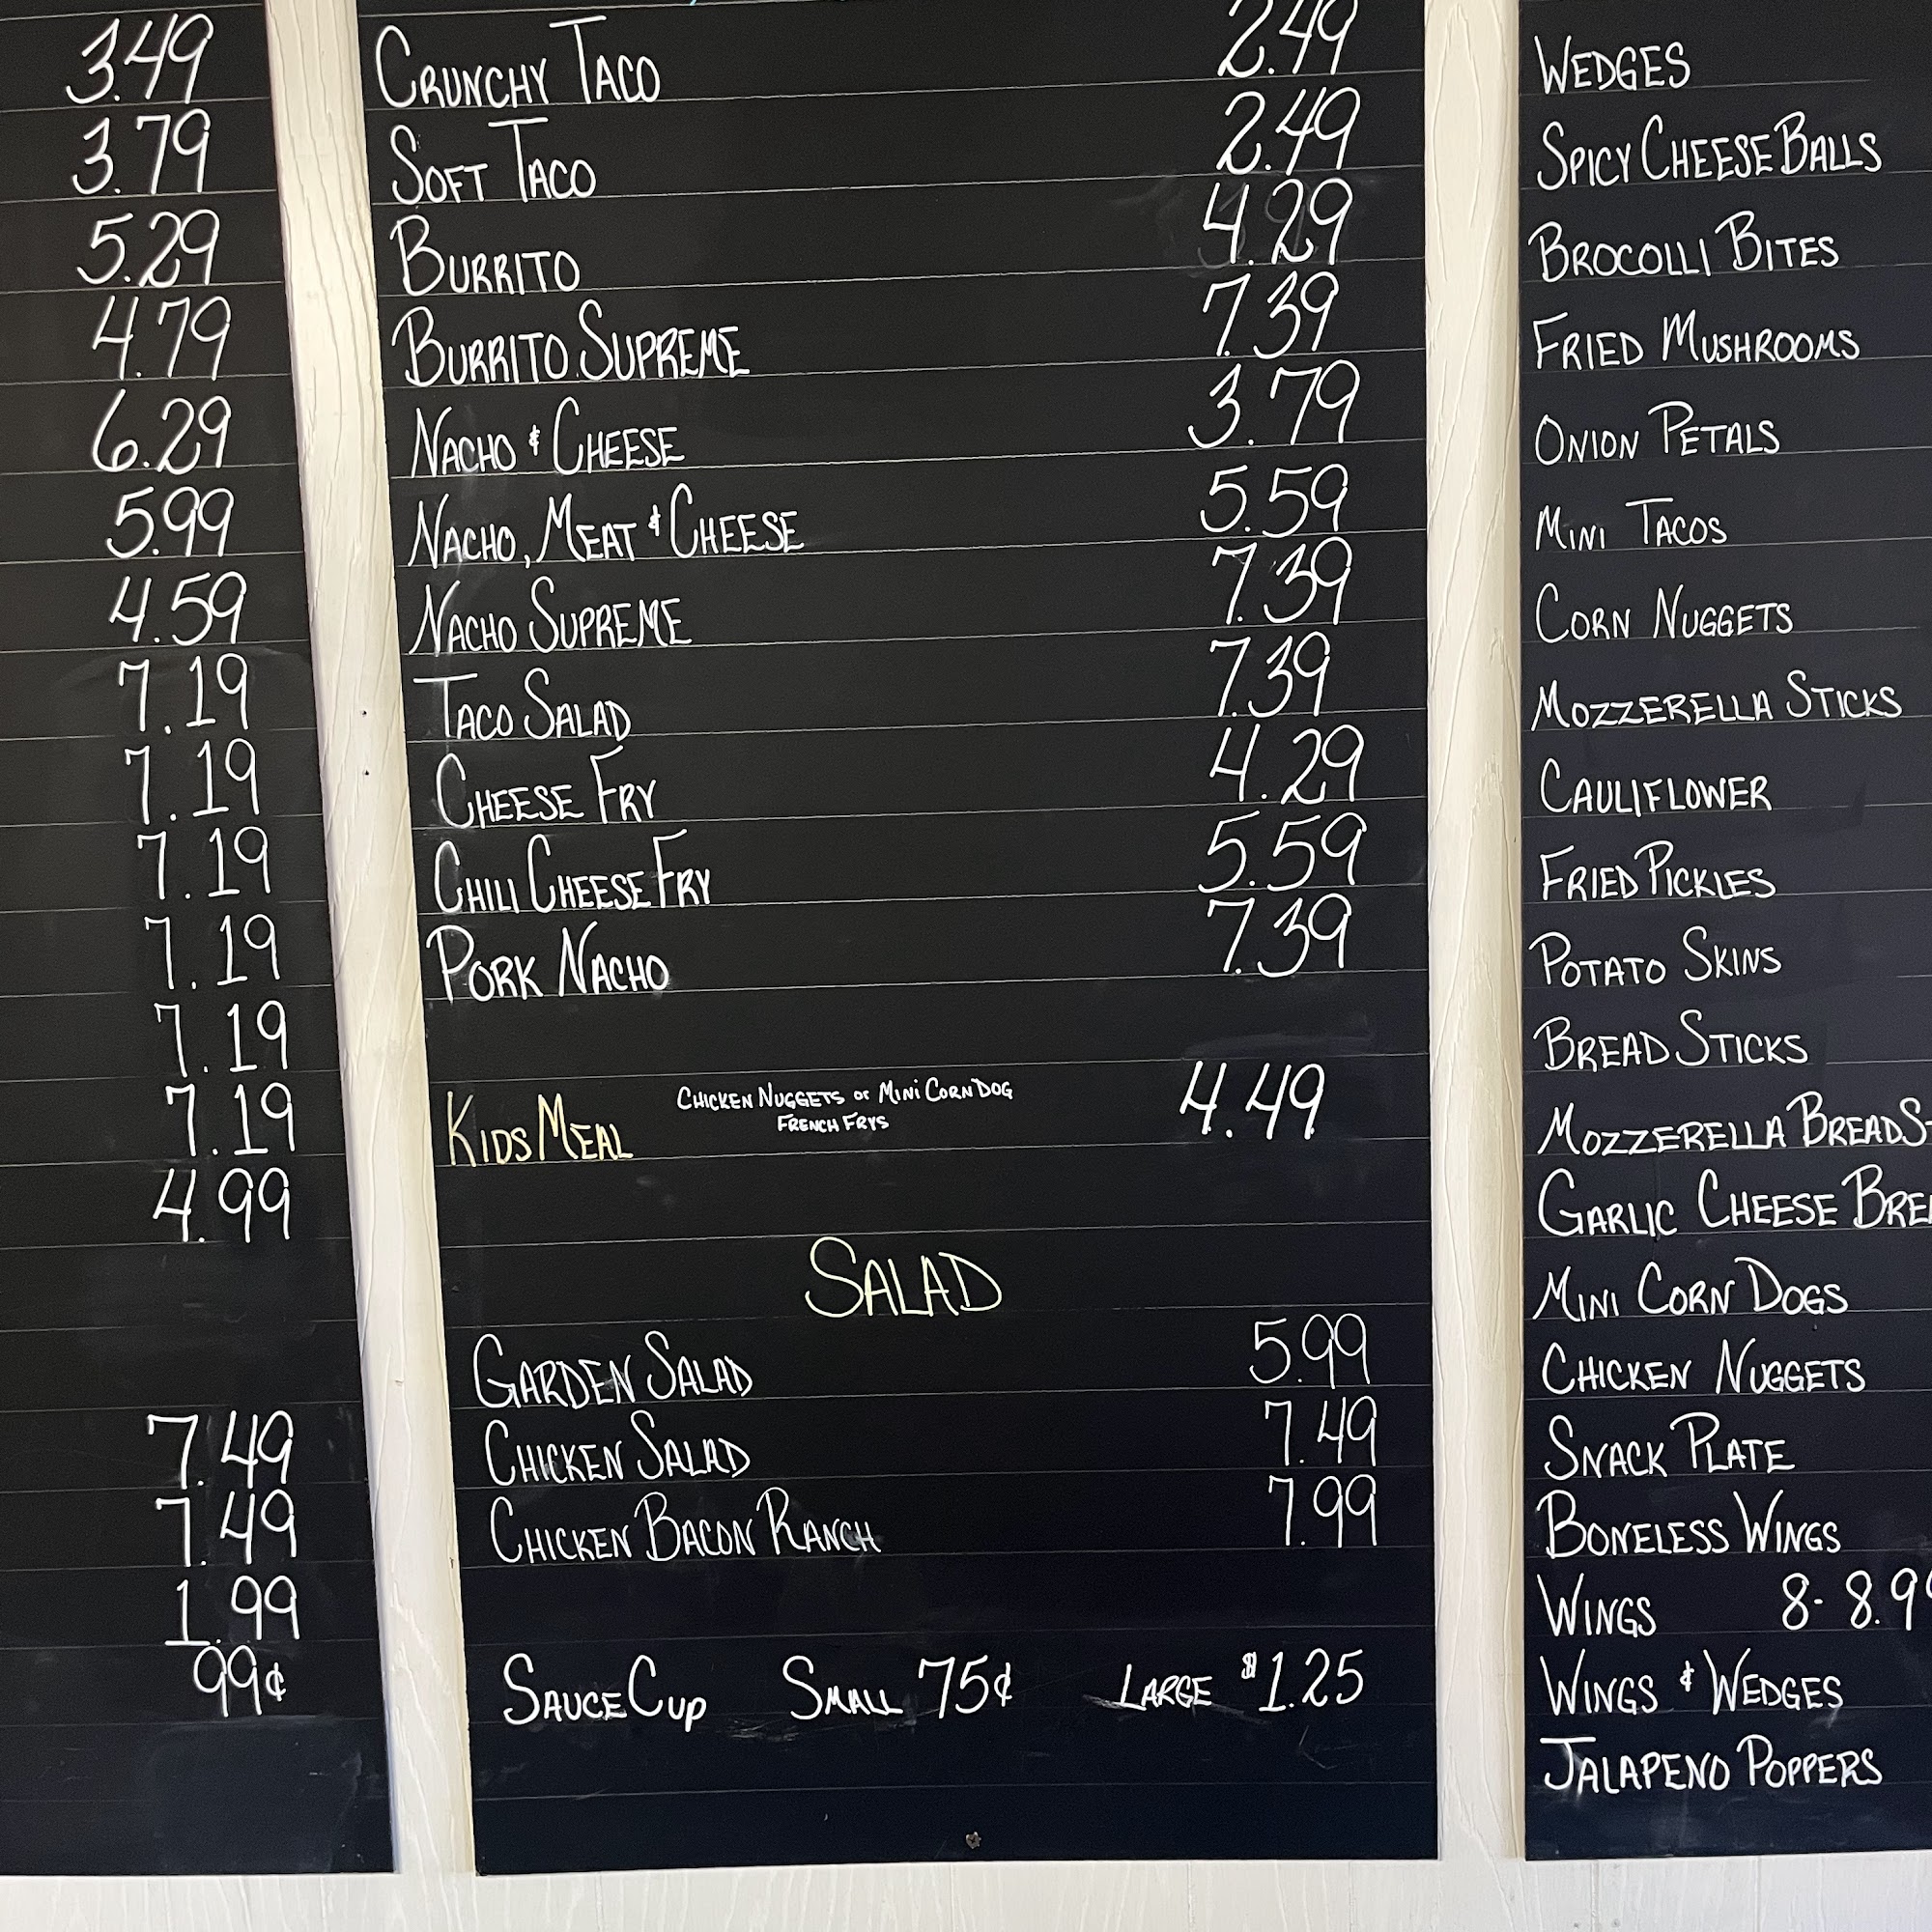 3.49
3.79
5.29
4.79
6.29
5.99
4.59
7.19
7.19
7.19
7.19
7.19
7.19
4.99
7.49
7.49
1.99
99¢
CRUNCHY TACO 2.49
SOFT TACO 2.49
BURRITO 4.29
BURRITO SUPREME 7.39
NACHO & CHEESE 3.79
NACHO, MEAT & CHEESE 5.59
NACHO SUPREME 7.39
TACO SALAD 7.39
CHEESE FRY 4.29
CHILI CHEESE FRY 5.59
PORK NACHO 7.39
KIDS MEAL CHICKEN NUGGETS or MINI CORN DOG 4.49
FRENCH FRYS
SALAD
GARDEN SALAD 5.99
CHICKEN SALAD 7.49
CHICKEN BACON RANCH 7.99
SAUCE CUP SMALL 75¢ LARGE $1.25
WEDGES
SPICY CHEESE BALLS
BROCOLLI BITES
FRIED MUSHROOMS
ONION PETALS
MINI TACOS
CORN NUGGETS
MOZZERELLA STICKS
CAULIFLOWER
FRIED PICKLES
POTATO SKINS
BREAD STICKS
MOZZERELLA BREADS
GARLIC CHEESE BRE
MINI CORN DOGS
CHICKEN NUGGETS
SNACK PLATE
BONELESS WINGS
WINGS 8- 8.9
WINGS & WEDGES
JALAPENO POPPERS